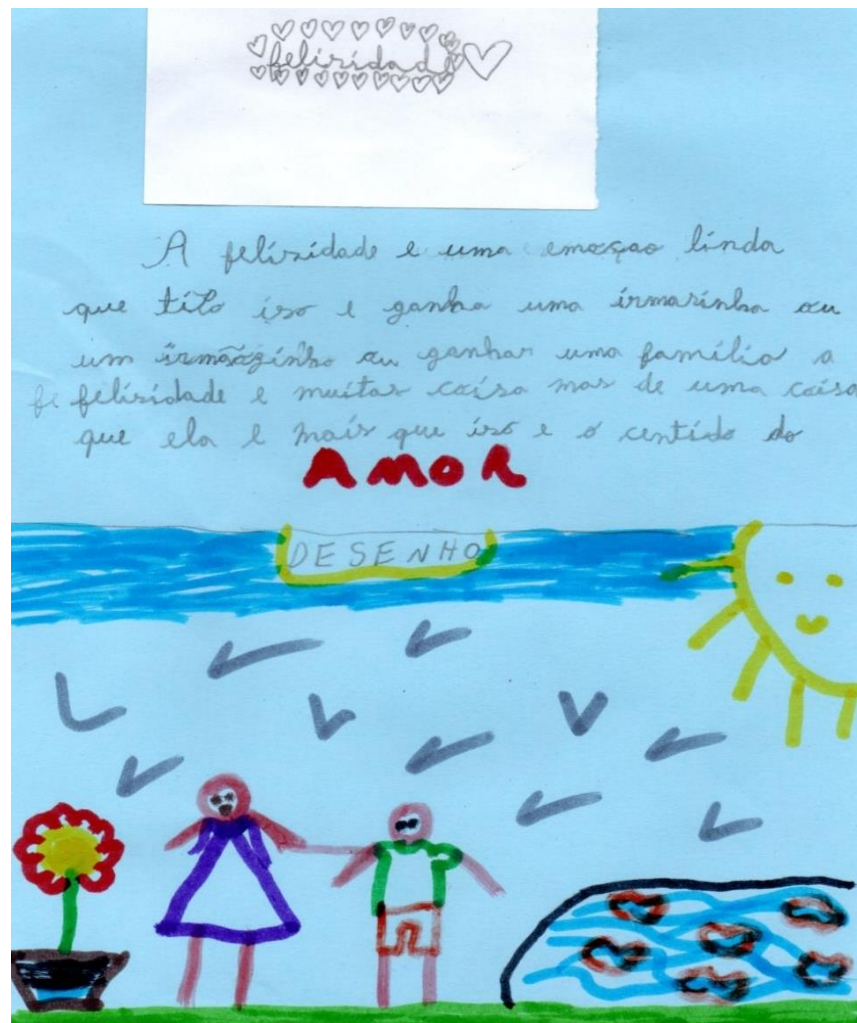 felisidade
A felisidade e uma emoçao linda
que tilo iso e ganha uma irmasinha ou
um irmãozinho ou ganhar uma família a
fe felisidade e muitas coisa mas de uma coisa
que ela e mais que iso e o centido do
AMOR
DESENHO